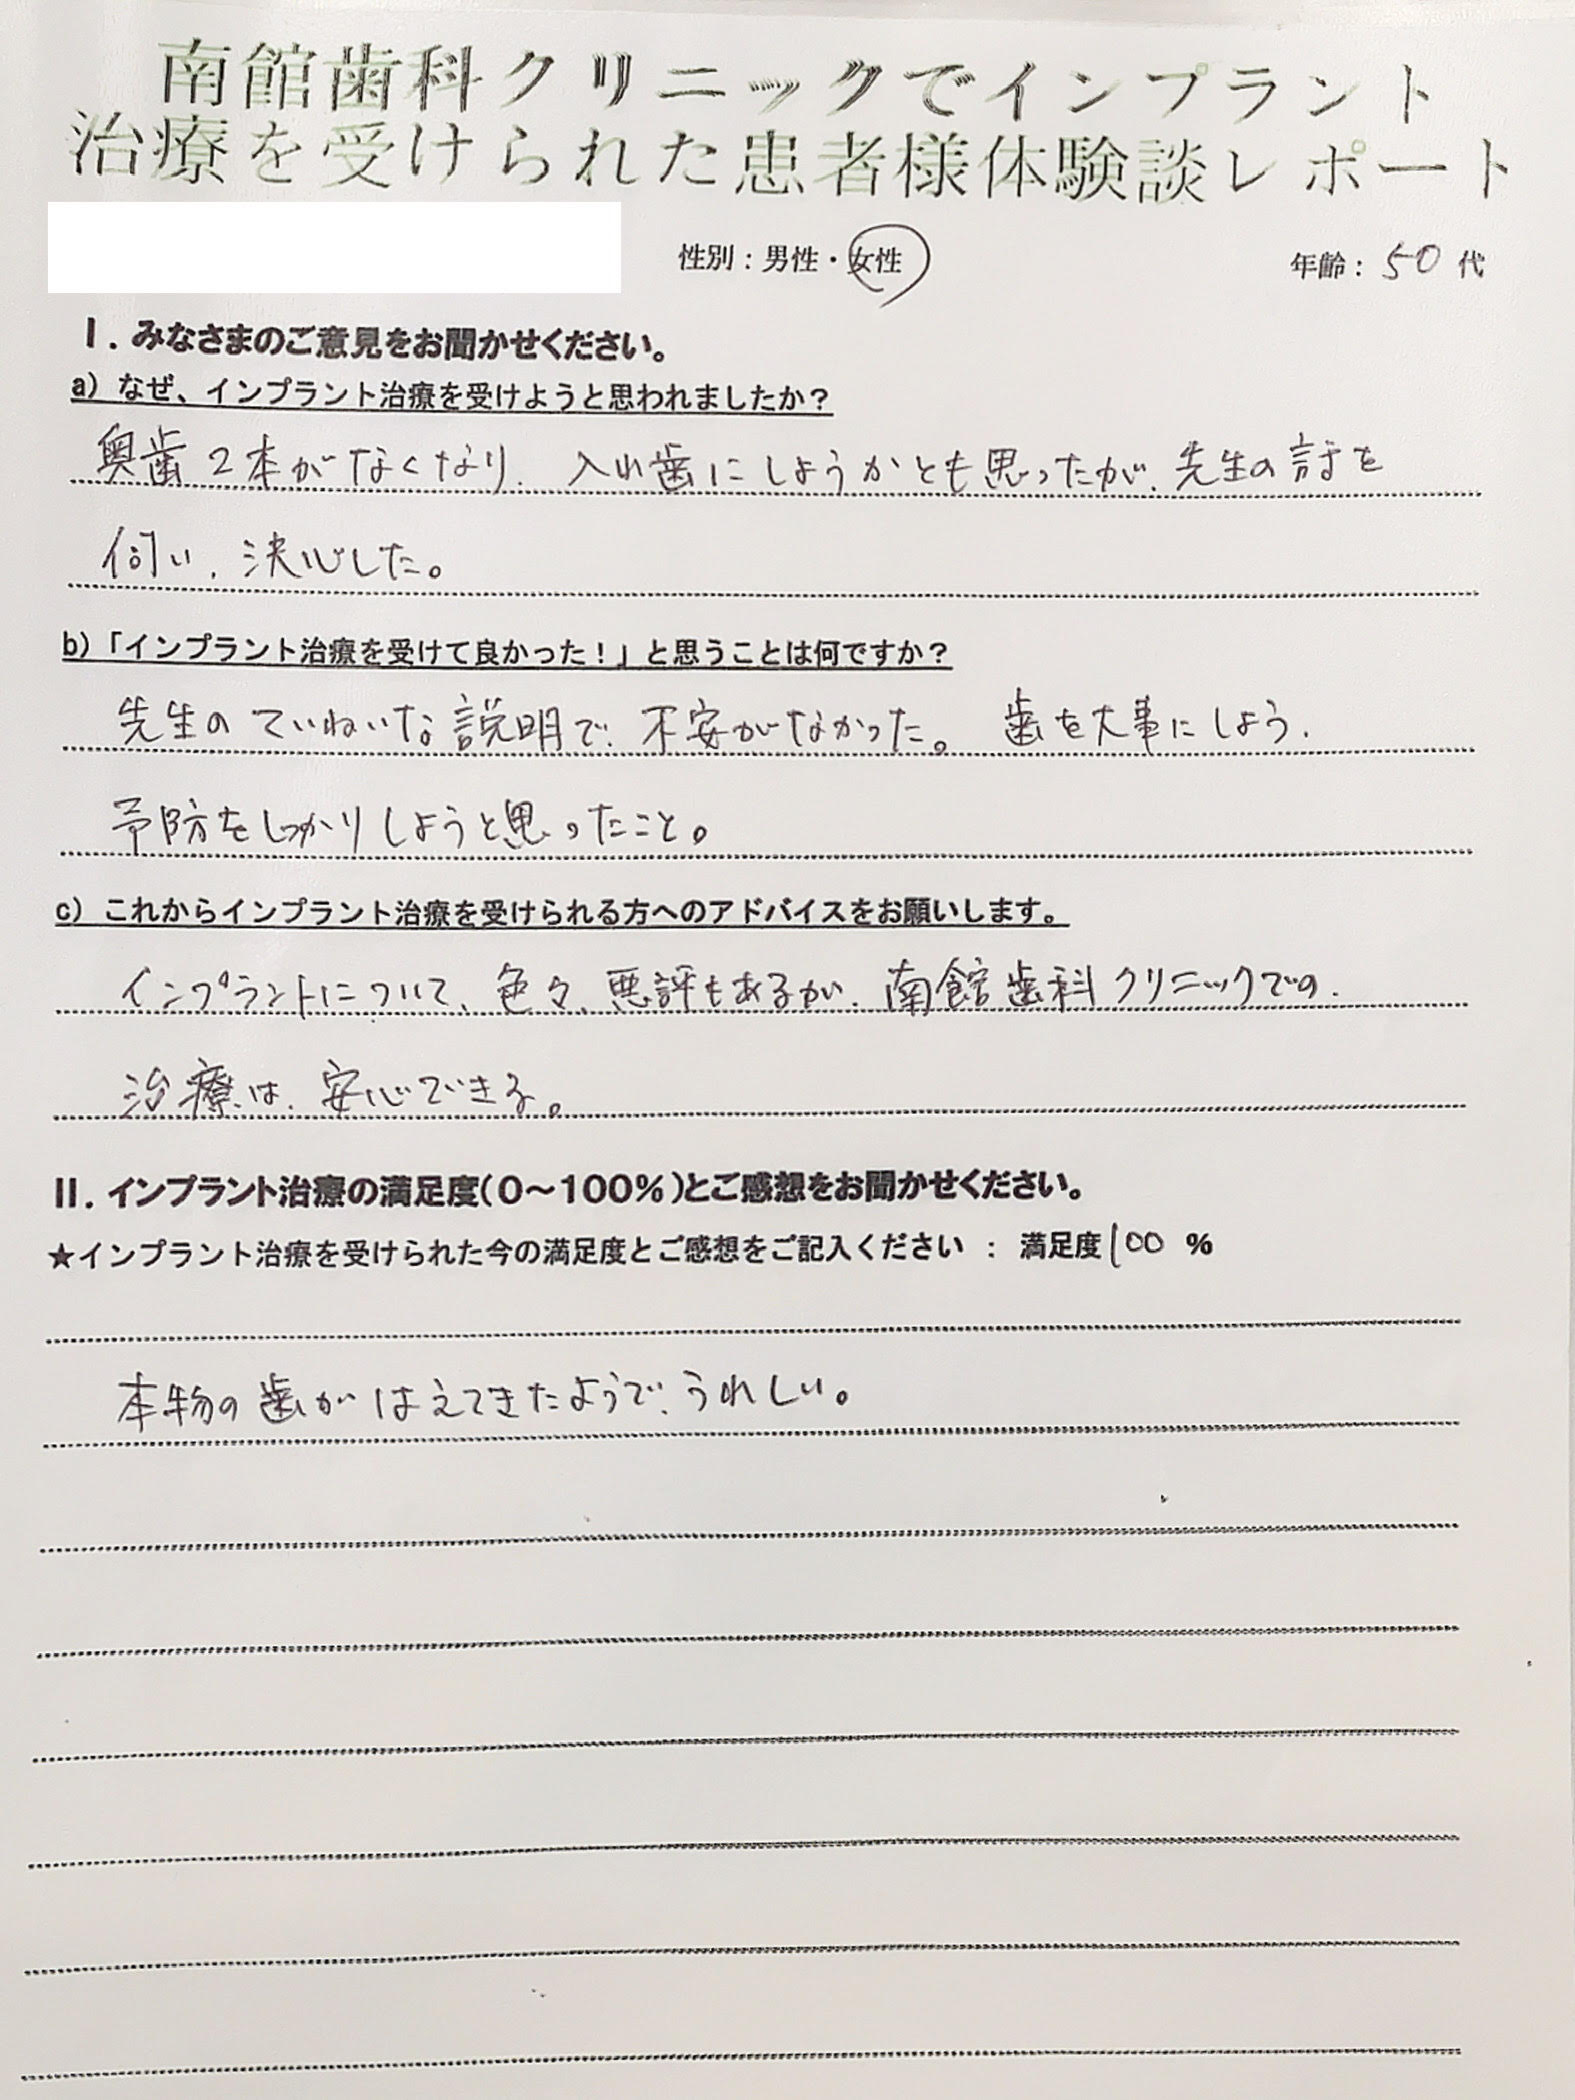 南館歯科クリニックでインプラント
治療を受けられた患者様体験談レポート
性別：男性・女性 年齢：50代
Ⅰ．みなさまのご意見をお聞かせください。
a）なぜ、インプラント治療を受けようと思われましたか？
奥歯2本がなくなり、入れ歯にしようかとも思ったが、先生の話を
伺い、決心した。
b）「インプラント治療を受けて良かった！」と思うことは何ですか？
先生のていねいな説明で、不安がなかった。歯を大事にしよう、
予防をしっかりしようと思ったこと。
c）これからインプラント治療を受けられる方へのアドバイスをお願いします。
インプラントについて、色々、悪評もあるが、南館歯科クリニックでの、
治療は、安心できる。
Ⅱ．インプラント治療の満足度（0～100％）とご感想をお聞かせください。
★インプラント治療を受けられた今の満足度とご感想をご記入ください ： 満足度100 ％
本物の歯がはえてきたようで、うれしい。